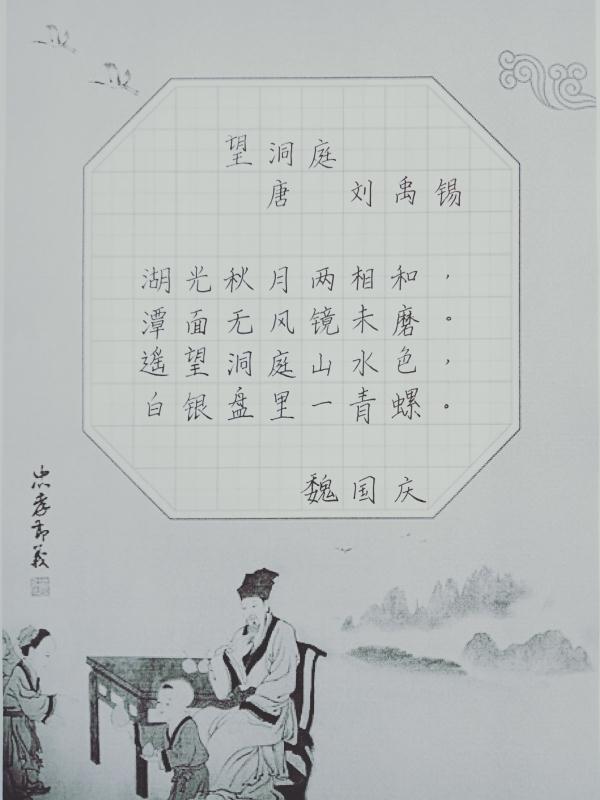 望洞庭
唐 刘禹锡
湖光秋月两相和，
潭面无风镜未磨。
遥望洞庭山水色，
白银盘里一青螺。
魏国庆
忠孝节义